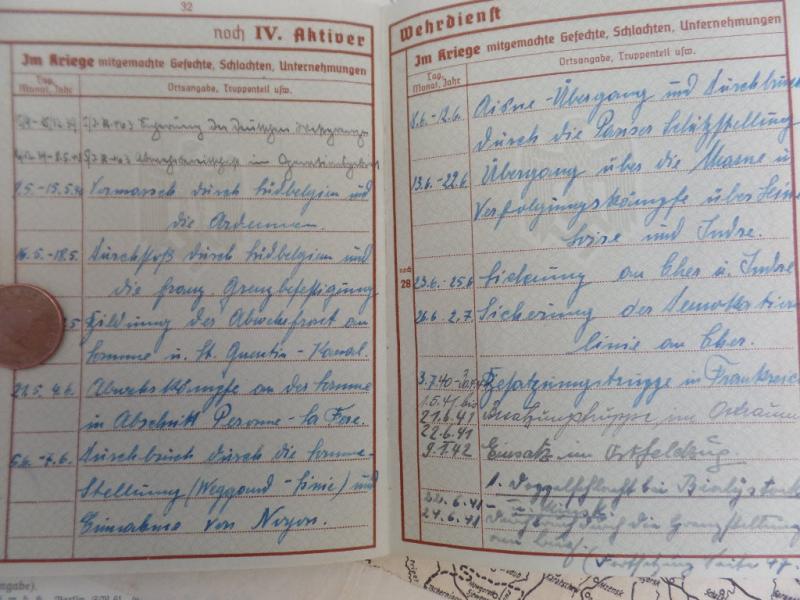 32
noch IV. Aktiver
Im Kriege mitgemachte Gefechte, Schlachten, Unternehmungen
Tag, Monat, Jahr
Ortsangabe, Truppenteil usw.
9.5. - 15.5.40 Vormarsch durch Südbelgien und
die Ardennen.
16.5. - 18.5. Durchstoß durch Südbelgien und
die franz. Grenzbefestigung
Bildung der Abwehrfront an
Somme u. St. Quentin - Kanal.
4.6. Abwehrkämpfe an der Somme
in Abschnitt Peronne - La Fère.
5.6. - 7.6. Durchbruch durch die Somme-
Stellung (Weygand - Linie) und
Einnahme von Noyon.
Wehrdienst
Im Kriege mitgemachte Gefechte, Schlachten, Unternehmungen
Tag, Monat, Jahr
Ortsangabe, Truppenteil usw.
8.6. - 12.6. Aisne - Übergang und Durchbruch
durch die Pariser Schutzstellung
13.6. - 22.6. Übergang über die Marne u.
Verfolgungskämpfe über Seine
Loire und Indre.
noch 28
23.6. - 25.6 Sicherung an Cher u. Indre
26.6. 2.7. Sicherung der Demarkation
linie am Cher.
3.7.40 - Besatzungstruppe in Frankreich
1.5.41 bis
21.6.41 im Ostraum
22.6.41
9.1.42 Einsatz im Ostfeldzug.
1. Doppelschlacht bei Bialystok
u. Minsk.
22.6.41 -
24.6.41 Durchbruch durch die Grenzstellung
(Fortsetzung Seite 47.